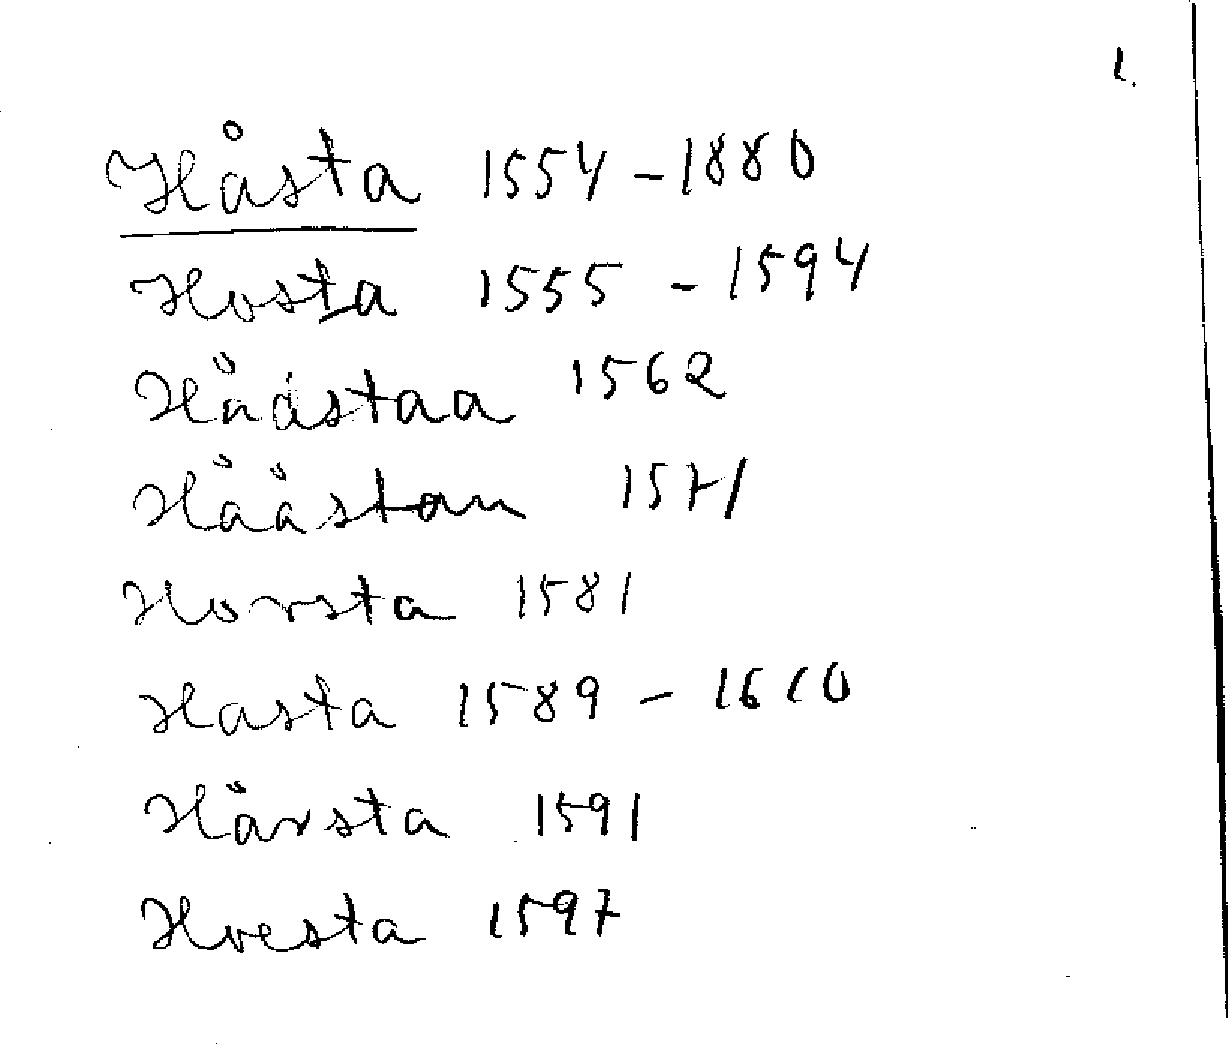 1.
Håsta 1554-1880
Hosta 1555 - 1594
Hååstaa 1562
Hååstan 1571
Horsta 1581
Hasta 1589 - 1610
Hårsta 1591
Hoesta 1597